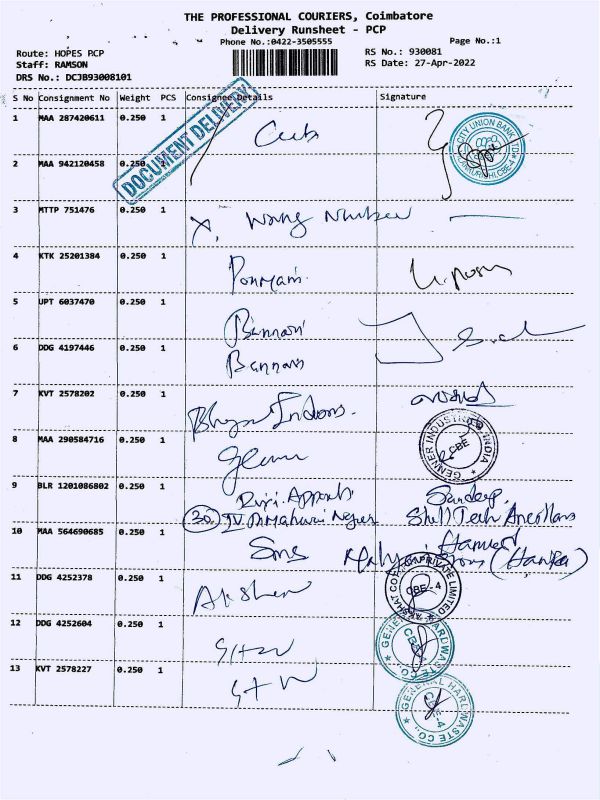 THE PROFESSIONAL COURIERS, Coimbatore
Delivery Runsheet - PCP
Phone No.:0422-3505555 Page No.:1
Route: HOPES RCP RS No.: 930081
Staff: RAMSON RS Date: 27-Apr-2022
DRS No.: DCJB93008101
S No Consignment No Weight PCS Consignee Details Signature
DOCUMENT DELIVERY
1 MAA 287420611 0.250 1
CITY UNION BANK LTD
2 MAA 942120458 0.250 1
3 MTTP 751476 0.250 1 X, Wrong Number
4 KTK 25201384 0.250 1
5 UPT 6037470 0.250 1 Bannari
6 DDG 4197446 0.250 1 Bannari
7 KVT 2578202 0.250 1
GENNER INDUSTRIES INDIA
CBE
8 MAA 290584716 0.250 1
9 BLR 1201086802 0.250 1 Sandeep
30
10 MAA 564690685 0.250 1 Sms
PRIVATE LIMITED
CBE-4
11 DDG 4252378 0.250 1
12 DDG 4252604 0.250 1
GENERAL HARDWASTE CO
13 KVT 2578227 0.250 1
GENERAL HARDWASTE CO